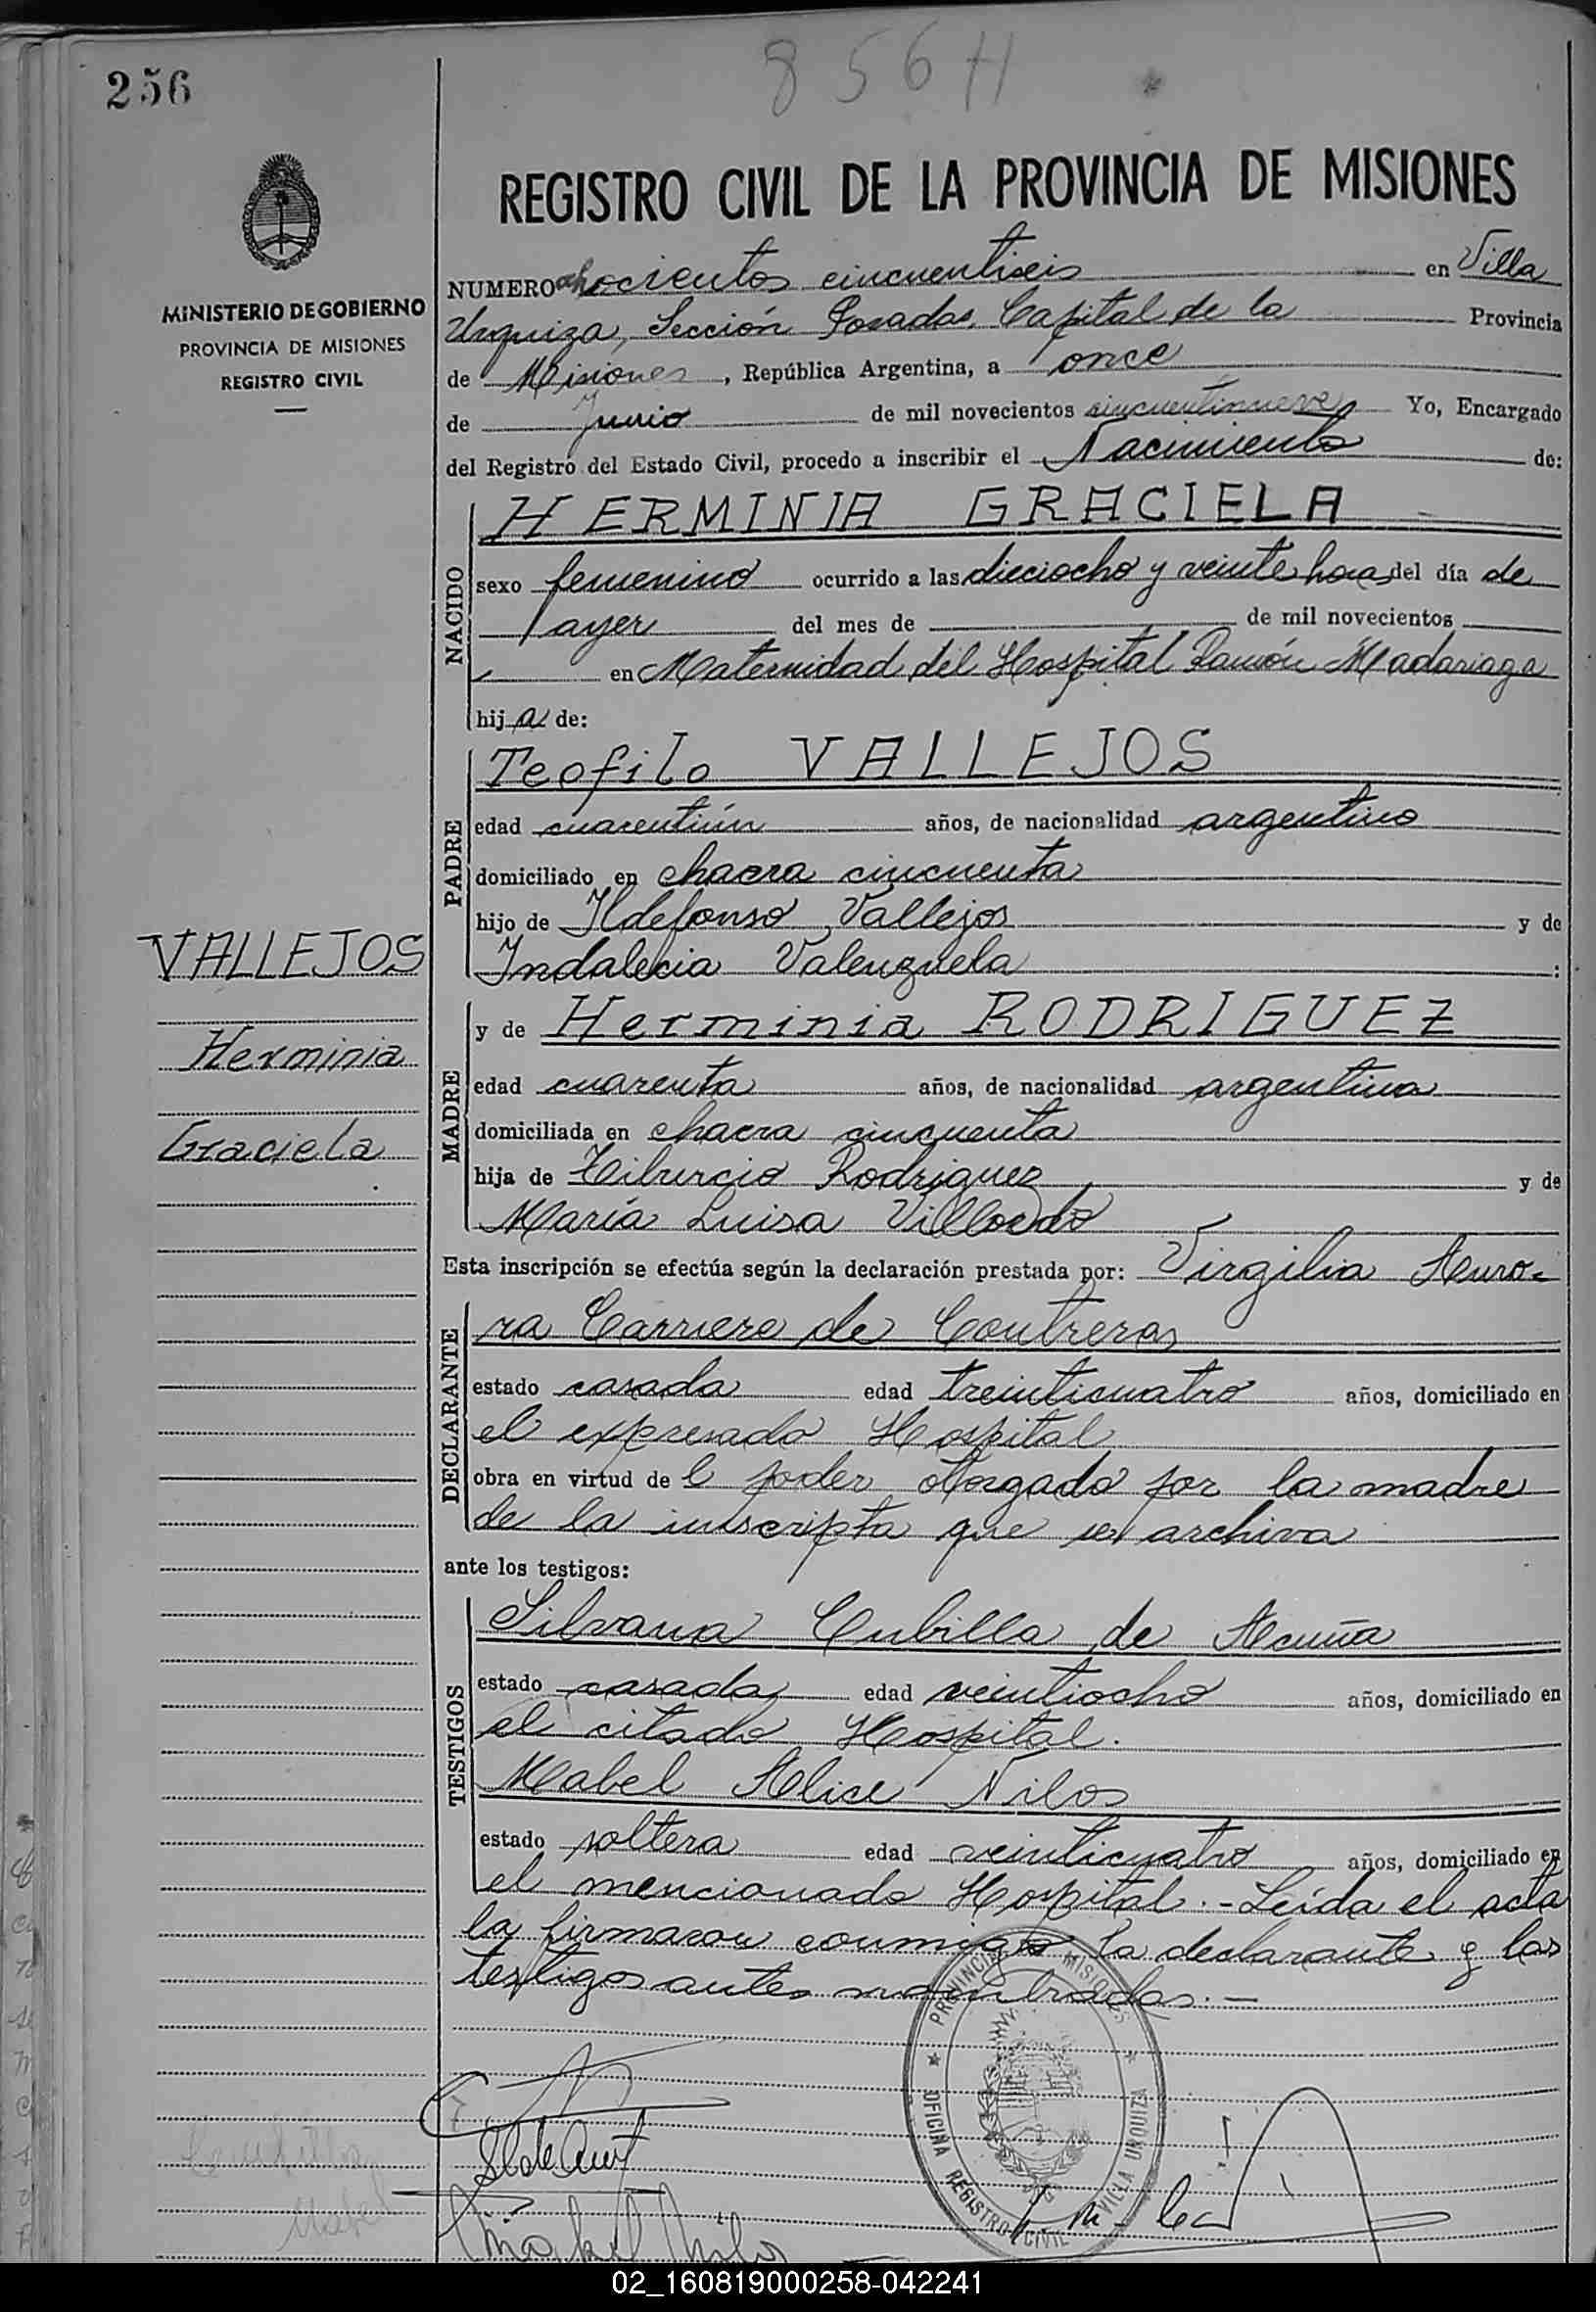 256
856 H
REGISTRO CIVIL DE LA PROVINCIA DE MISIONES
MINISTERIO DE GOBIERNO
PROVINCIA DE MISIONES
REGISTRO CIVIL
NUMERO ochocientos cincuentiseis en Villa
Urquiza, Sección Posadas, Capital de la Provincia
de Misiones, República Argentina, a once
de Junio de mil novecientos cincuentinueve Yo, Encargado
del Registro del Estado Civil, procedo a inscribir el Nacimiento de:
NACIDO
HERMINIA GRACIELA
sexo femenino ocurrido a las dieciocho y veinte horas del día de
ayer del mes de de mil novecientos
en Maternidad del Hospital Ramón Madariaga
hija de:
PADRE
Teofilo VALLEJOS
edad cuarentiún años, de nacionalidad argentino
domiciliado en chacra cincuenta
hijo de Ildefonso Vallejos y de
Indalecia Valenzuela :
VALLEJOS
Herminia
Graciela
MADRE
y de Herminia RODRIGUEZ
edad cuarenta años, de nacionalidad argentina
domiciliada en chacra cincuenta
hija de Tiburcio Rodriguez y de
María Luisa Villordo
Esta inscripción se efectúa según la declaración prestada por: Virgilia Auro-
DECLARANTE
ra Carriero de Contreras
estado casada edad treinticuatro años, domiciliado en
el expresado Hospital
obra en virtud del poder otorgado por la madre
de la inscripta que se archiva
ante los testigos:
TESTIGOS
Silvana Cubilla de Acuña
estado casada edad veintiocho años, domiciliado en
el citado Hospital.
Mabel Alice Nilos
estado soltera edad veinticuatro años, domiciliado en
el mencionado Hospital.- Leída el acta
la firmaron conmigo la declarante y las
testigos antes nombradas.-
PROVINCIA DE MISIONES
OFICINA REGISTRO CIVIL VILLA URQUIZA
02_160819000258-042241